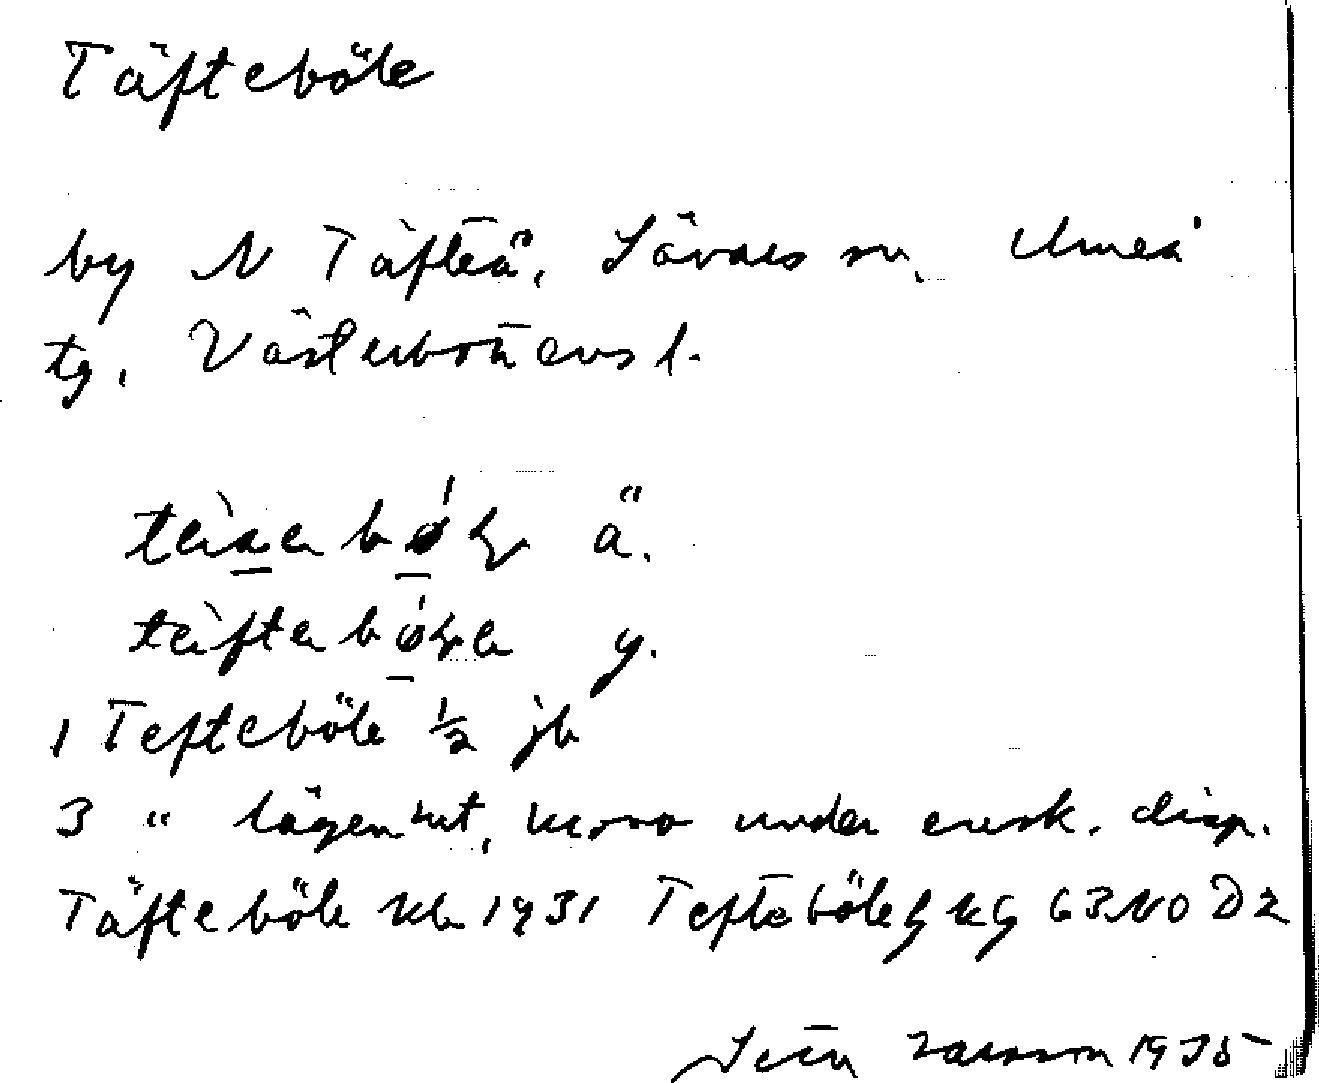 Täfteböle
by N Täfteå, Sävars sn, Umeå
tg, Västerbottens l.
ä.
y.
1 Tefteböle 1/2 jb
3 " lägenhet, krono under ensk. disp.
Täfteböle kb 1931 Tefteböle kg 63 NO D2
Sven Larsson 1935